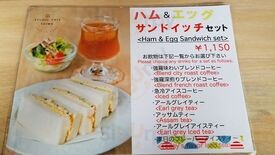 ハム & エッグ
サンドイッチセット
<Ham & Egg Sandwich set>
¥1,150
お飲物は下記一覧からお選び下さい
Please choose any drinks for a set as follows.
・強焙煎味わいブレンドコーヒー
<Blend city roast coffee>
・強焙煎深煎りブレンドコーヒー
<Blend french roast coffee>
・急冷アイスコーヒー
<Iced coffee>
・アールグレイティー
<Earl grey tea>
・アッサムティー
<Assam tea>
・アールグレイアイスティー
<Earl grey iced tea>